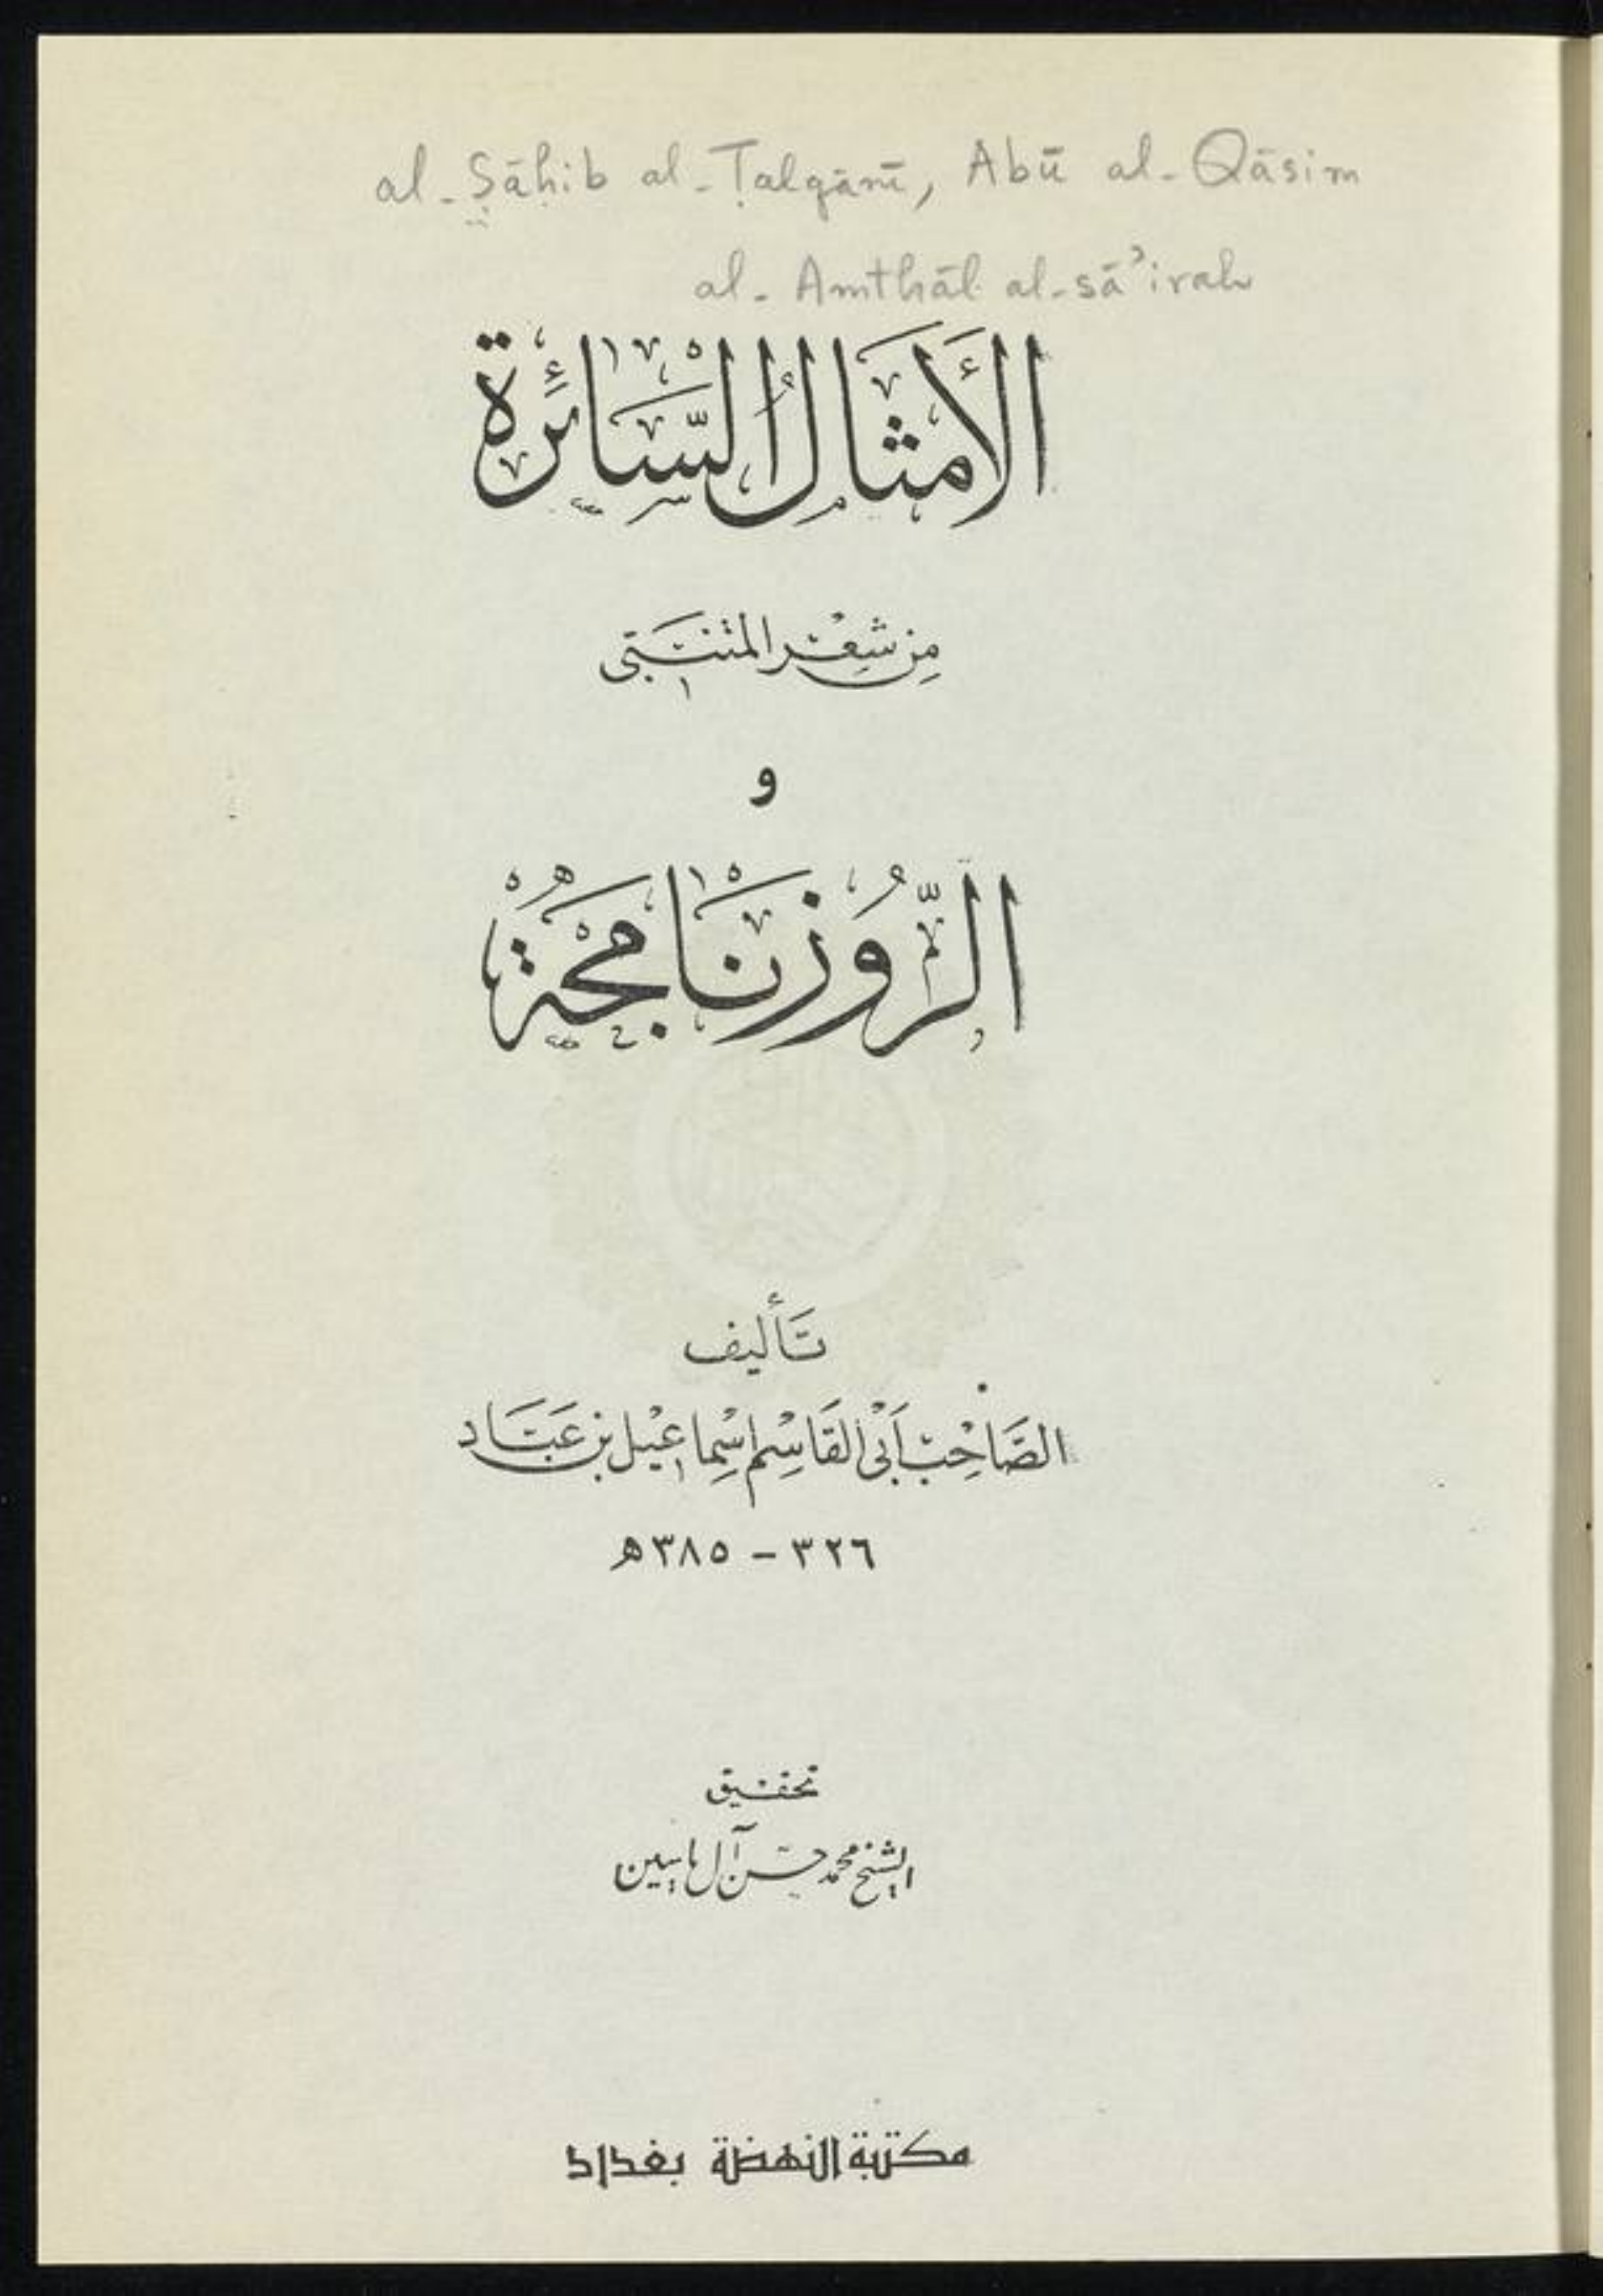 al-Ṣāḥib al-Ṭalqānī, Abū al-Qāsim
al-Amthāl al-sāʾirah
الأَمثَالُ السَّائِرَة
مِن شِعْر المتنَبّي
و
الرُّوزنَامجَة
تَأليف
الصَّاحِبْ أَبي القَاسِم إسْماعيْل بن عَبَّاد
٣٢٦ - ٣٨٥ هـ
تحقيق
الشيخ محمد حسن آل ياسين
مكتبة النهضة بغداد